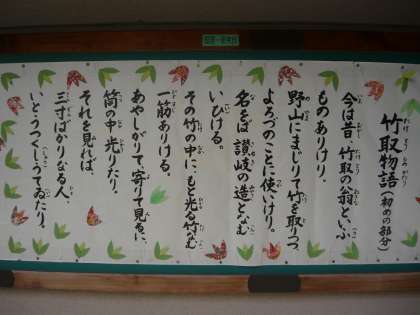 竹取物語（初めの部分）
今は昔、竹取の翁といふ
ものありけり。
野山にまじりて竹を取りつつ
よろづのことに使いけり。
名をば、讃岐の造となむ
いひける。
その竹の中に、もと光る竹なむ
一筋ありける。
あやしがりて、寄りて見るに、
筒の中光りたり。
それを見れば、
三寸ばかりなる人、
いとうつくしうてゐたり。